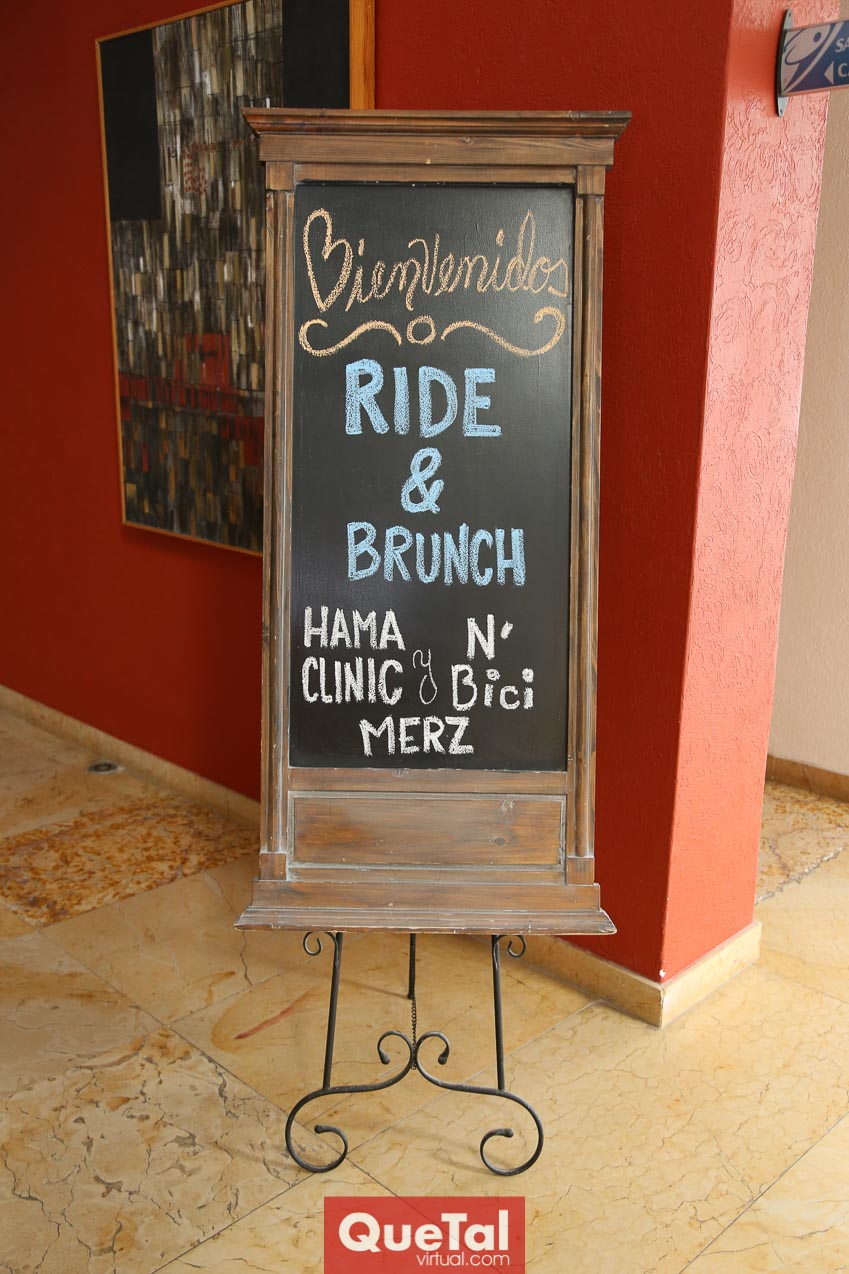 Bienvenidos
RIDE
&
BRUNCH
HAMA N'
CLINIC y Bici
MERZ
QueTal
virtual.com